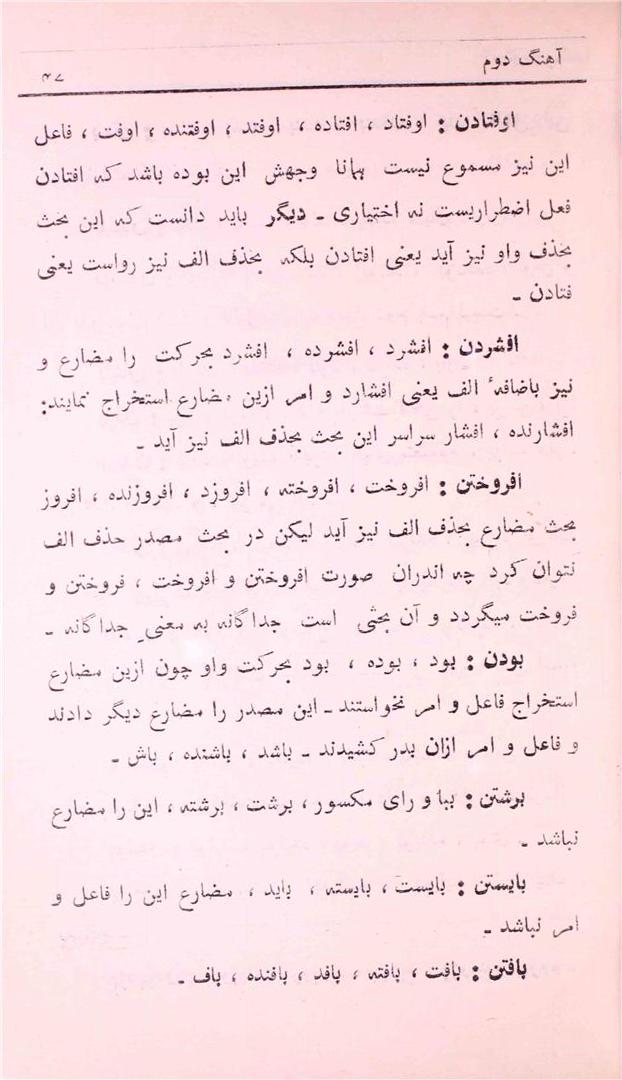 آهنگ دوم
۴۷
اوفتادن : اوفتاد ، افتاده ، اوفتد ، اوفتنده ، اوفت ، فاعل
این نیز مسموع نیست همانا وجهش این بوده باشد که افتادن
فعل اضطراریست نه اختیاری ـ دیگر باید دانست که این بحث
بحذف واو نیز آید یعنی افتادن بلکه بحذف الف نیز رواست یعنی
فتادن ـ
افشردن : افشرد ، افشرده ، افشرد بحرکت را مضارع و
نیز باضافهٔ الف یعنی افشارد و امر ازین مضارع استخراج نمایند:
افشارنده ، افشار سراسر این بحث بحذف الف نیز آید ـ
افروختن : افروخت ، افروخته ، افروزد ، افروزنده ، افروز
بحث مضارع بحذف الف نیز آید لیکن در بحث مصدر حذف الف
نتوان کرد چه اندران صورت افروختن و افروخت ، فروختن و
فروخت میگردد و آن بحثی است جداگانه به معنیِ جداگانه ـ
بودن : بود ، بوده ، بود بحرکت واو چون ازین مضارع
استخراج فاعل و امر نخواستند ـ این مصدر را مضارع دیگر دادند
و فاعل و امر ازان بدر کشیدند ـ باشد ، باشنده ، باش ـ
برشتن : ببا و رای مکسور ، برشت ، برشته ، این را مضارع
نباشد ـ
بایستن : بایست ، بایسته ، باید ، مضارع این را فاعل و
امر نباشد ـ
بافتن : بافت ، بافته ، بافد ، بافنده ، باف ـ